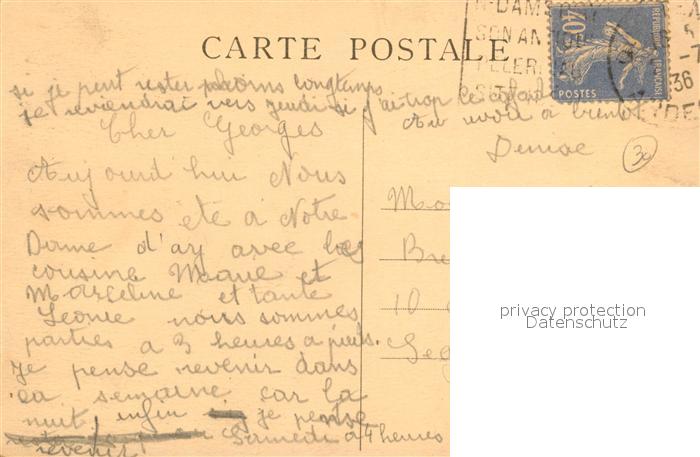 N-DAM
SON ANTIQUE
PELERINAGE
CARTE POSTALE
40c
REPUBLIQUE FRANÇAISE
POSTES
36
si je peut rester moins longtemps
je reviendrai vers jeudi si j'ai trop le cafard
Au revoir a bientôt
Denise
30
Cher Georges
Aujourd hui Nous
sommes ete a Notre
Dame d'ay avec les
cousine Marie et
Marceline et tante
Leonie nous sommes
parties a 3 heures a pieds.
Je pense revenir dans
la semaine car la
nuit enfin je pense
revenir Samedi a 4 heures
Mo
Bre
10
Seg
privacy protection
Datenschutz